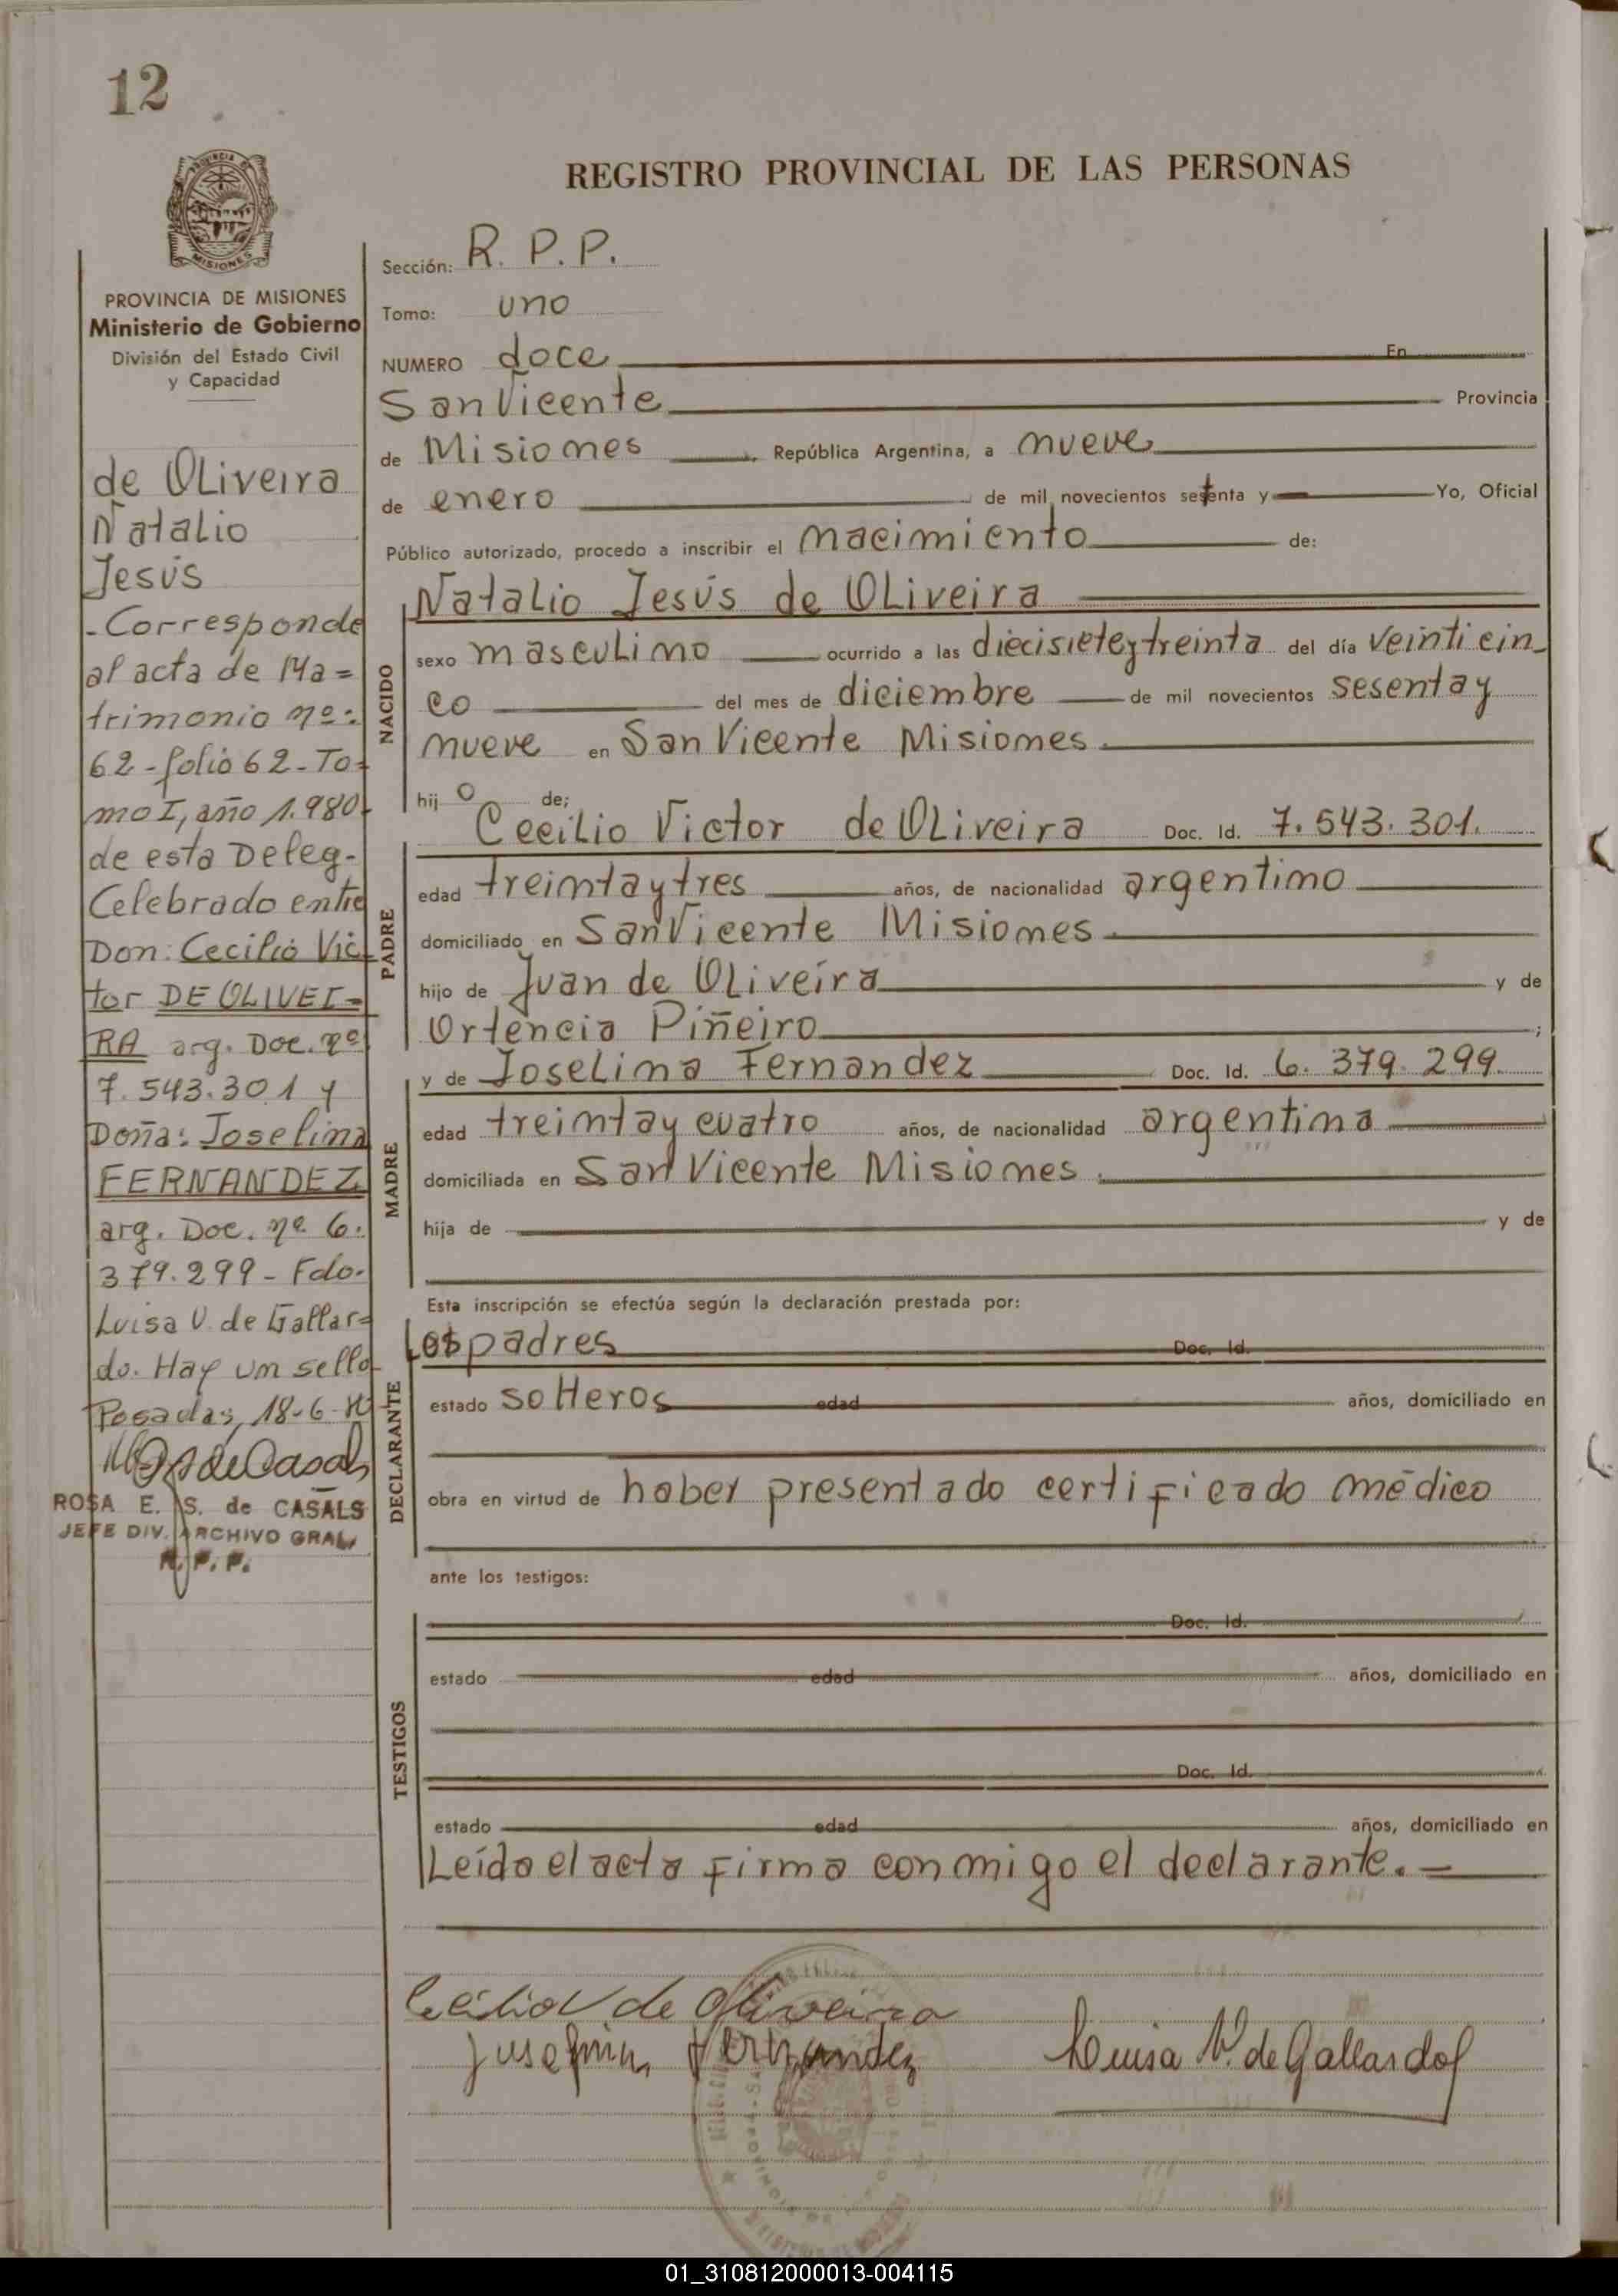 12
REGISTRO PROVINCIAL DE LAS PERSONAS
MISIONES
PROVINCIA DE MISIONES
Ministerio de Gobierno
División del Estado Civil
y Capacidad
de OLiveira
Natalio
Jesús
- Corresponde
al acta de Ma=
trimonio nº:
62 - folio 62 - To-
mo I, año 1.980-
de esta Deleg-
Celebrado entre
Don: Cecilio Vic-
tor DE OLIVEI=
RA arg. Doc. nº
7.543.301 y
Doña: Joselina
FERNANDEZ
arg. Doc. nº 6.
379.299 - Fdo.
Luisa V. de Gallar=
do. Hay un sello
Posadas, 18-6-80
ROSA E. S. de CASALS
JEFE DIV. ARCHIVO GRAL.
R. P. P.
Sección: R. P. P.
Tomo: uno
NUMERO doce En
San Vicente Provincia
de Misiones , República Argentina, a nueve
de enero de mil novecientos setenta y Yo, Oficial
Público autorizado, procedo a inscribir el nacimiento de:
NACIDO
Natalio Jesús de OLiveira
sexo masculino ocurrido a las diecisiete y treinta del día veinticin-
co del mes de diciembre de mil novecientos sesenta y
nueve en San Vicente Misiones.
hij o de;
PADRE
Cecilio Victor de OLiveira Doc. Id. 7.543.301.
edad treinta y tres años, de nacionalidad argentino
domiciliado en San Vicente Misiones.
hijo de Juan de OLiveira y de
Ortencia Piñeiro ;
MADRE
y de Joselina Fernandez Doc. Id. 6.379.299.
edad treinta y cuatro años, de nacionalidad argentina
domiciliada en San Vicente Misiones.
hija de y de
Esta inscripción se efectúa según la declaración prestada por:
DECLARANTE
Los padres Doc. Id.
estado solteros edad años, domiciliado en
obra en virtud de haber presentado certificado médico
ante los testigos:
TESTIGOS
Doc. Id.
estado edad años, domiciliado en
Doc. Id.
estado edad años, domiciliado en
Leído el acta firma conmigo el declarante.
Cecilio V de Oliveira
Fernandez
Luisa V. de Gallardo
01_310812000013-004115